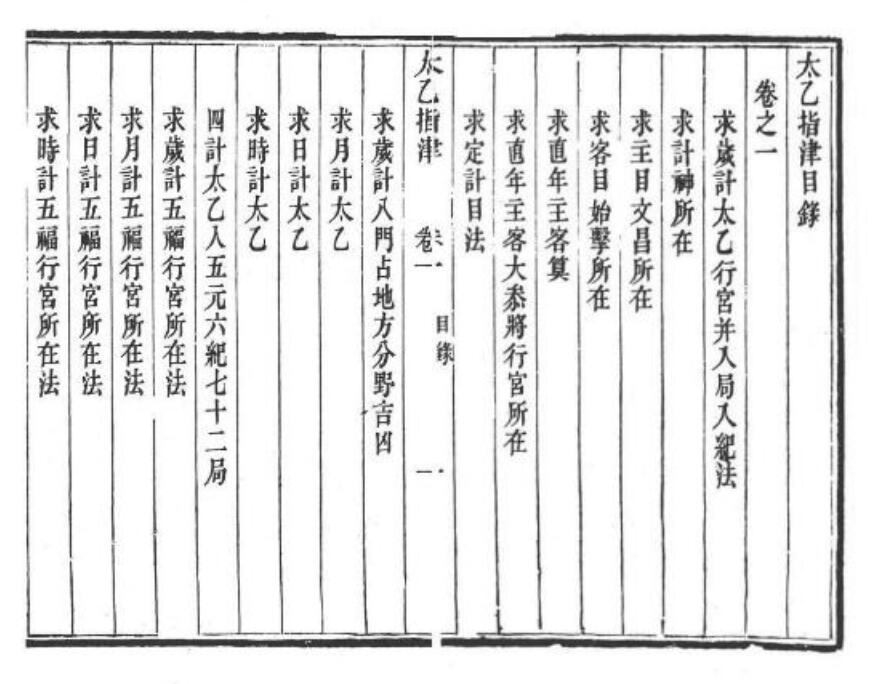 太乙指津目錄
卷之一
求歲計太乙行宮并入局入紀法
求計神所在
求主目文昌所在
求客目始擊所在
求直年主客算
求直年主客大叅將行宮所在
求定計目法
太乙指津 卷一 目錄 一
求歲計八門占地方分野吉凶
求月計太乙
求日計太乙
求時計太乙
四計太乙入五元六紀七十二局
求歲計五福行宮所在法
求月計五福行宮所在法
求日計五福行宮所在法
求時計五福行宮所在法